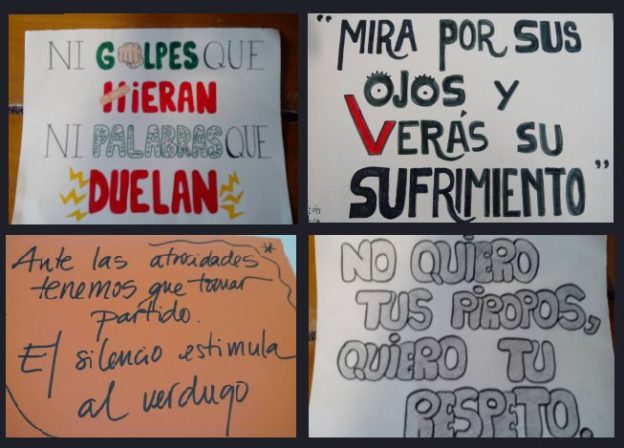 NI GOLPES QUE
HIERAN
NI PALABRAS QUE
DUELAN
"MIRA POR SUS
OJOS Y
VERÁS SU
SUFRIMIENTO"
Ante las atrocidades
tenemos que tomar
partido.
El silencio estimula
al verdugo
NO QUIERO
TUS PIROPOS,
QUIERO TU
RESPETO.